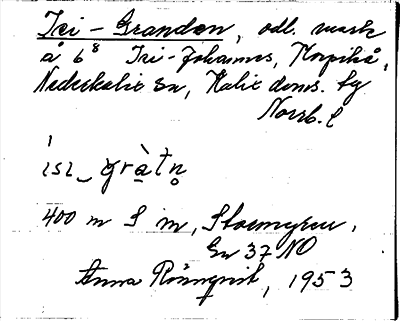 Isi-Grandon, odl. mark
å 6⁸ Isi-Johannes, Korpikå,
Nederkalix sn, Kalix doms. hg
Norrb. l
ˈisi‿gràtn̥
400 m S m, Storengren.
Gr 37 NO
Anna Rönnqvist, 1953